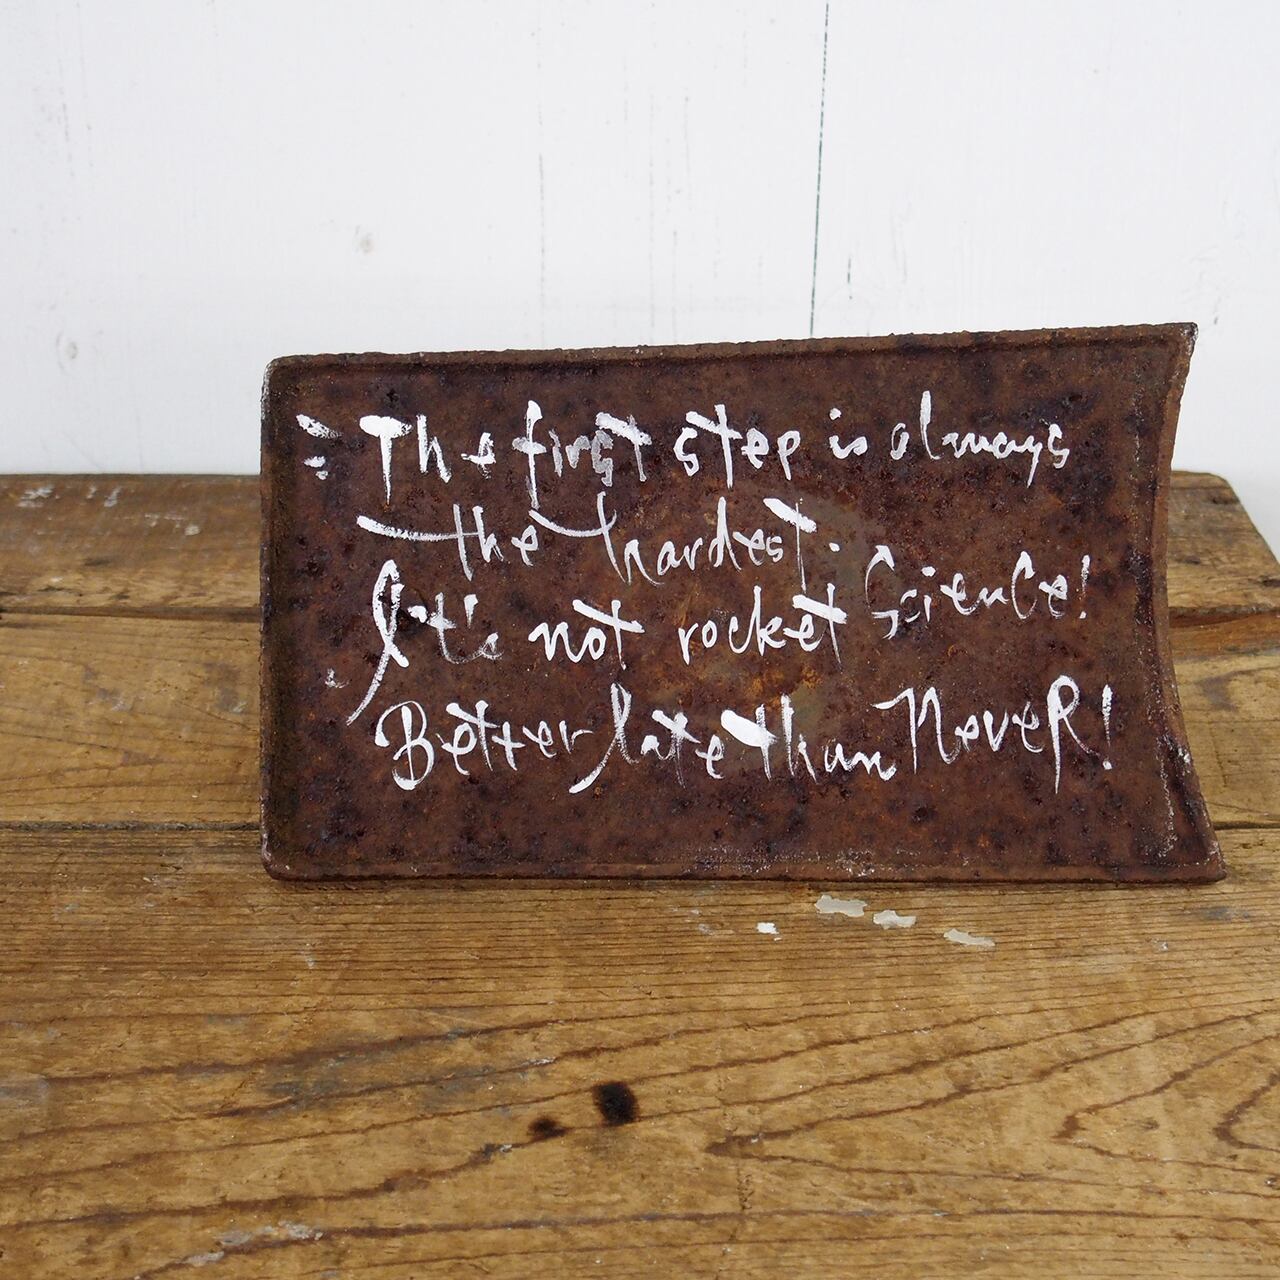 The first step is always
the hardest.
It's not rocket Science!
Better late than NeveR!